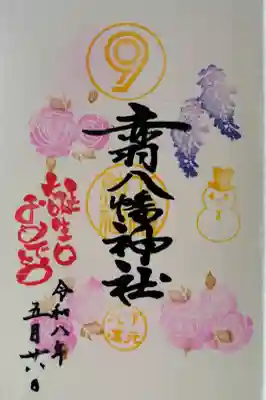 9
赤羽八幡神社
お誕生日
おめでとう
令和八年
五月廿八日